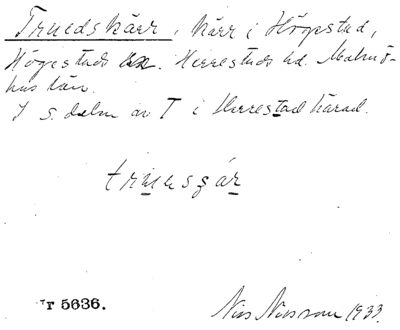 Truedskärr, kärr i Högestad,
Högestads sn. Herrestads hd. Malmö-
hus län.
I s. delen av T i Herrestad härad.
Nr 5636. Nils Nilsson 1933.